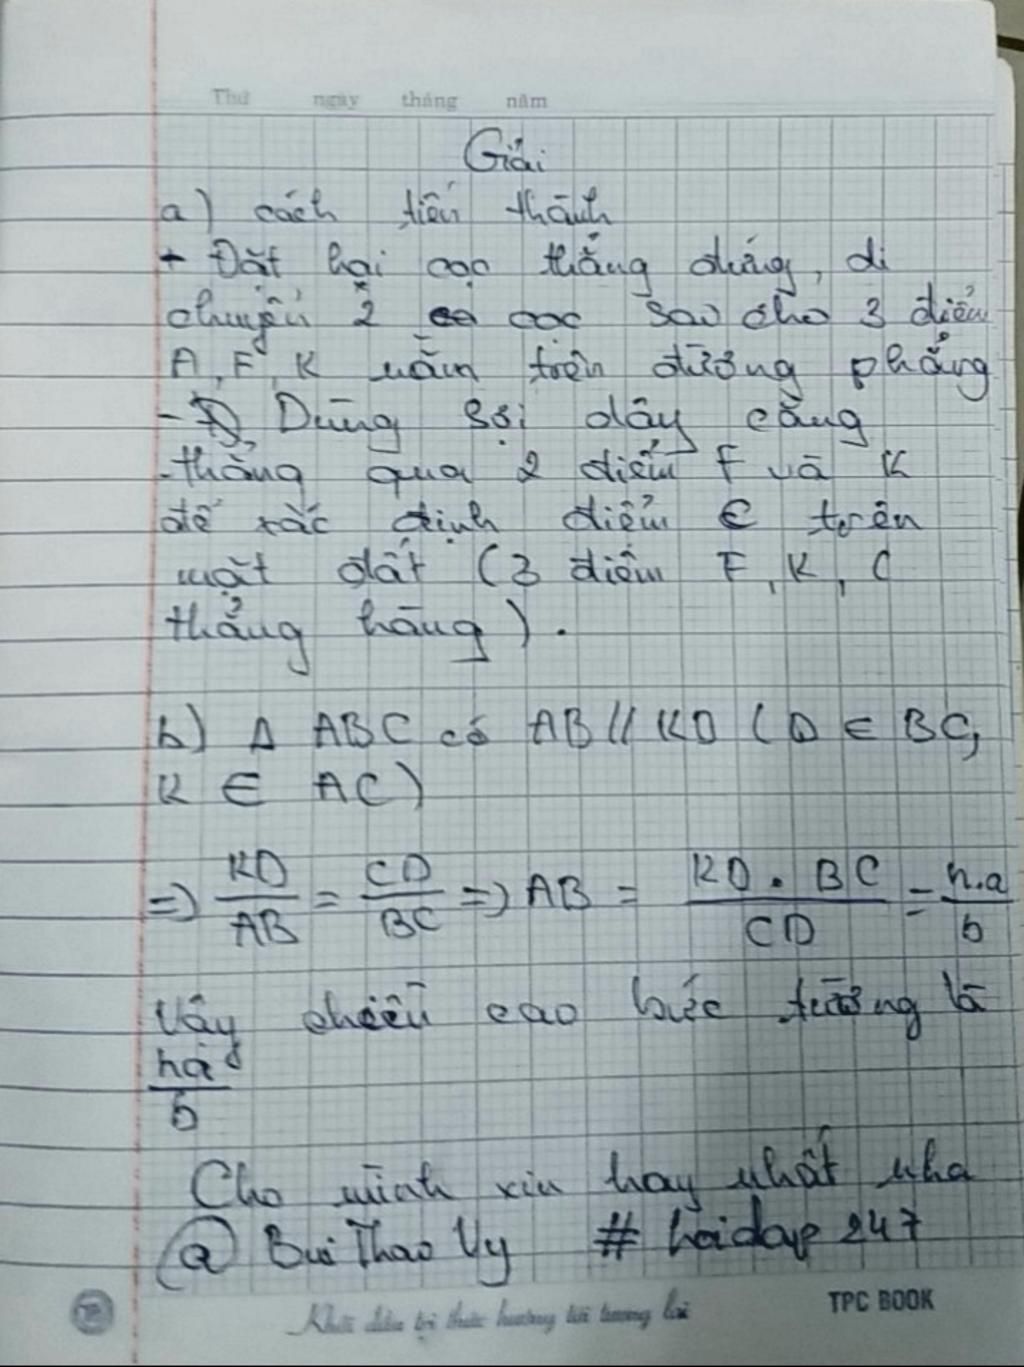 Thứ ngày tháng năm
Giải
a) cách tiến thành
+ Đặt hai cọc thẳng đứng, di
chuyển 2 cọc sao cho 3 điểm
A, F, K nằm trên đường phẳng
- Dùng sợi dây căng
thẳng qua 2 điểm F và K
để xác định điểm C trên
mặt đất (3 điểm F, K, C
thẳng hàng).
b) Δ ABC có AB // KD (D ∈ BC,
K ∈ AC)
=> KD/AB = CD/BC => AB = KD . BC/CD = h.a/b
Vậy chiều cao bức tường là
ha/b
Cho mình xin hay nhất nha
@ Bui Thao Vy # hoidap 247
Khơi đầu tri thức hướng tới tương lai
TPC BOOK